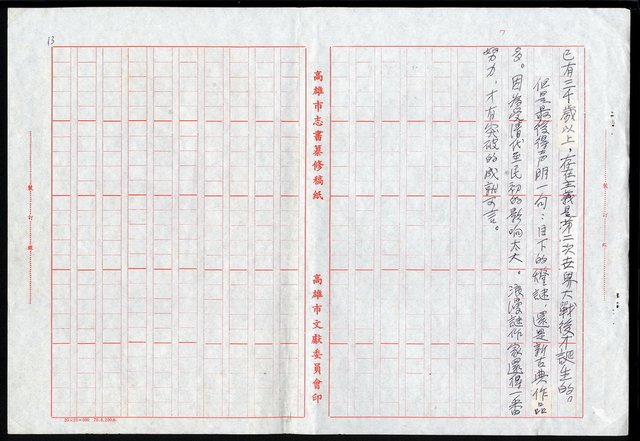 已有二千歲以上，存在主義是第二次世界大戰後才誕生的。
但是最後得声明一句：目下的燈謎，還是新古典作品
多。因為受清代至民初的影响太大。浪漫謎作家還得一番
努力，才有突破的成就可言。
高雄市志書纂修稿紙
高雄市文獻委員會印
裝訂線
裝訂線
13
7